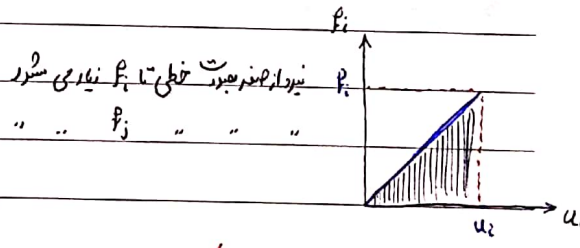 نیرو از صفر بصورت خطی تا Pi زیاد می شود
" " Pj " " "
Pi
Pi
ui
u